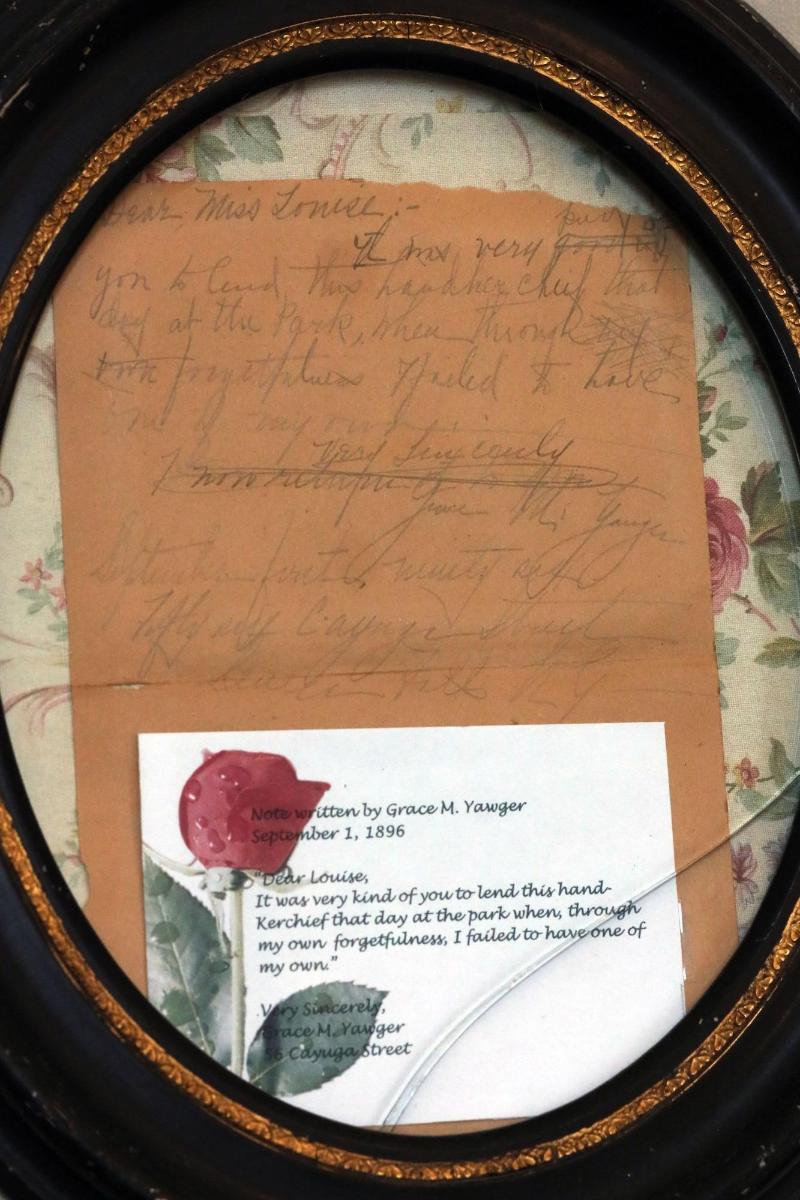 Dear Miss Louise:-
It was very
you to lend this handkerchief that
day at the Park, when through
forgetfulness I failed to have
one of my own
Very Sincerely
I now return
M. Yawger
September first, ninety six
Fifty six Cayuga Street
Seneca Falls N.Y.
Note written by Grace M. Yawger
September 1, 1896
"Dear Louise,
It was very kind of you to lend this hand-
Kerchief that day at the park when, through
my own forgetfulness, I failed to have one of
my own."
Very Sincerely,
Grace M. Yawger
56 Cayuga Street